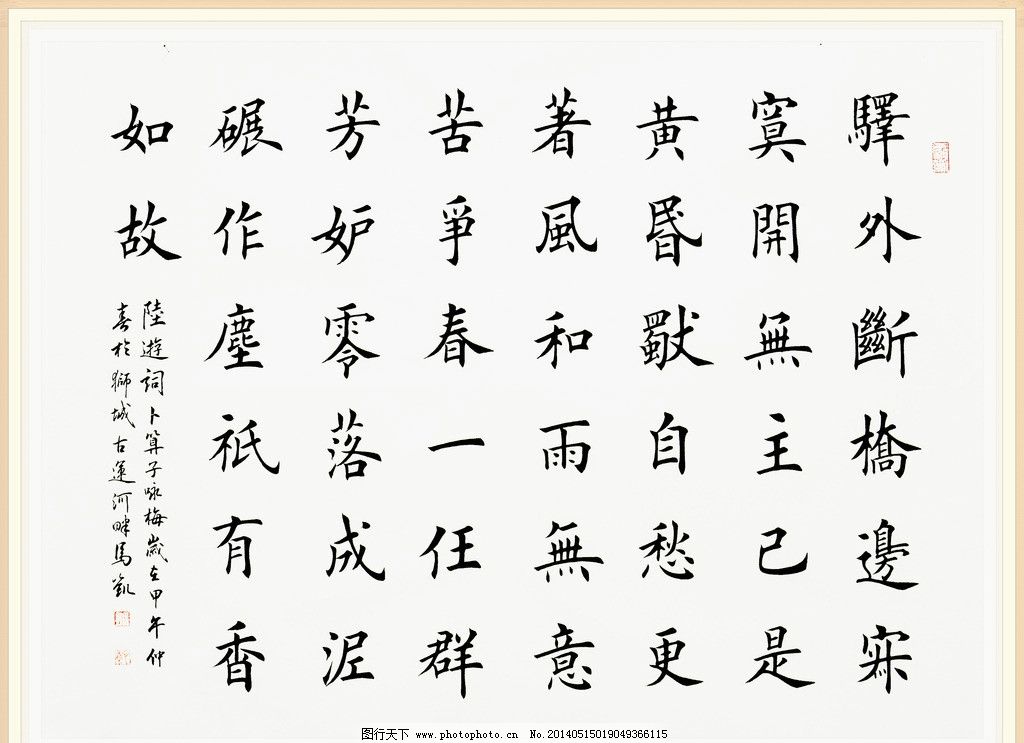 驛外斷橋邊寂
寞開無主已是
黃昏獨自愁更
著風和雨無意
苦爭春一任群
芳妒零落成泥
碾作塵祇有香
如故
陸遊詞卜算子咏梅歲在甲午仲
春於獅城古運河畔馬凱
图行天下 www.photophoto.cn No.20140515019049366115